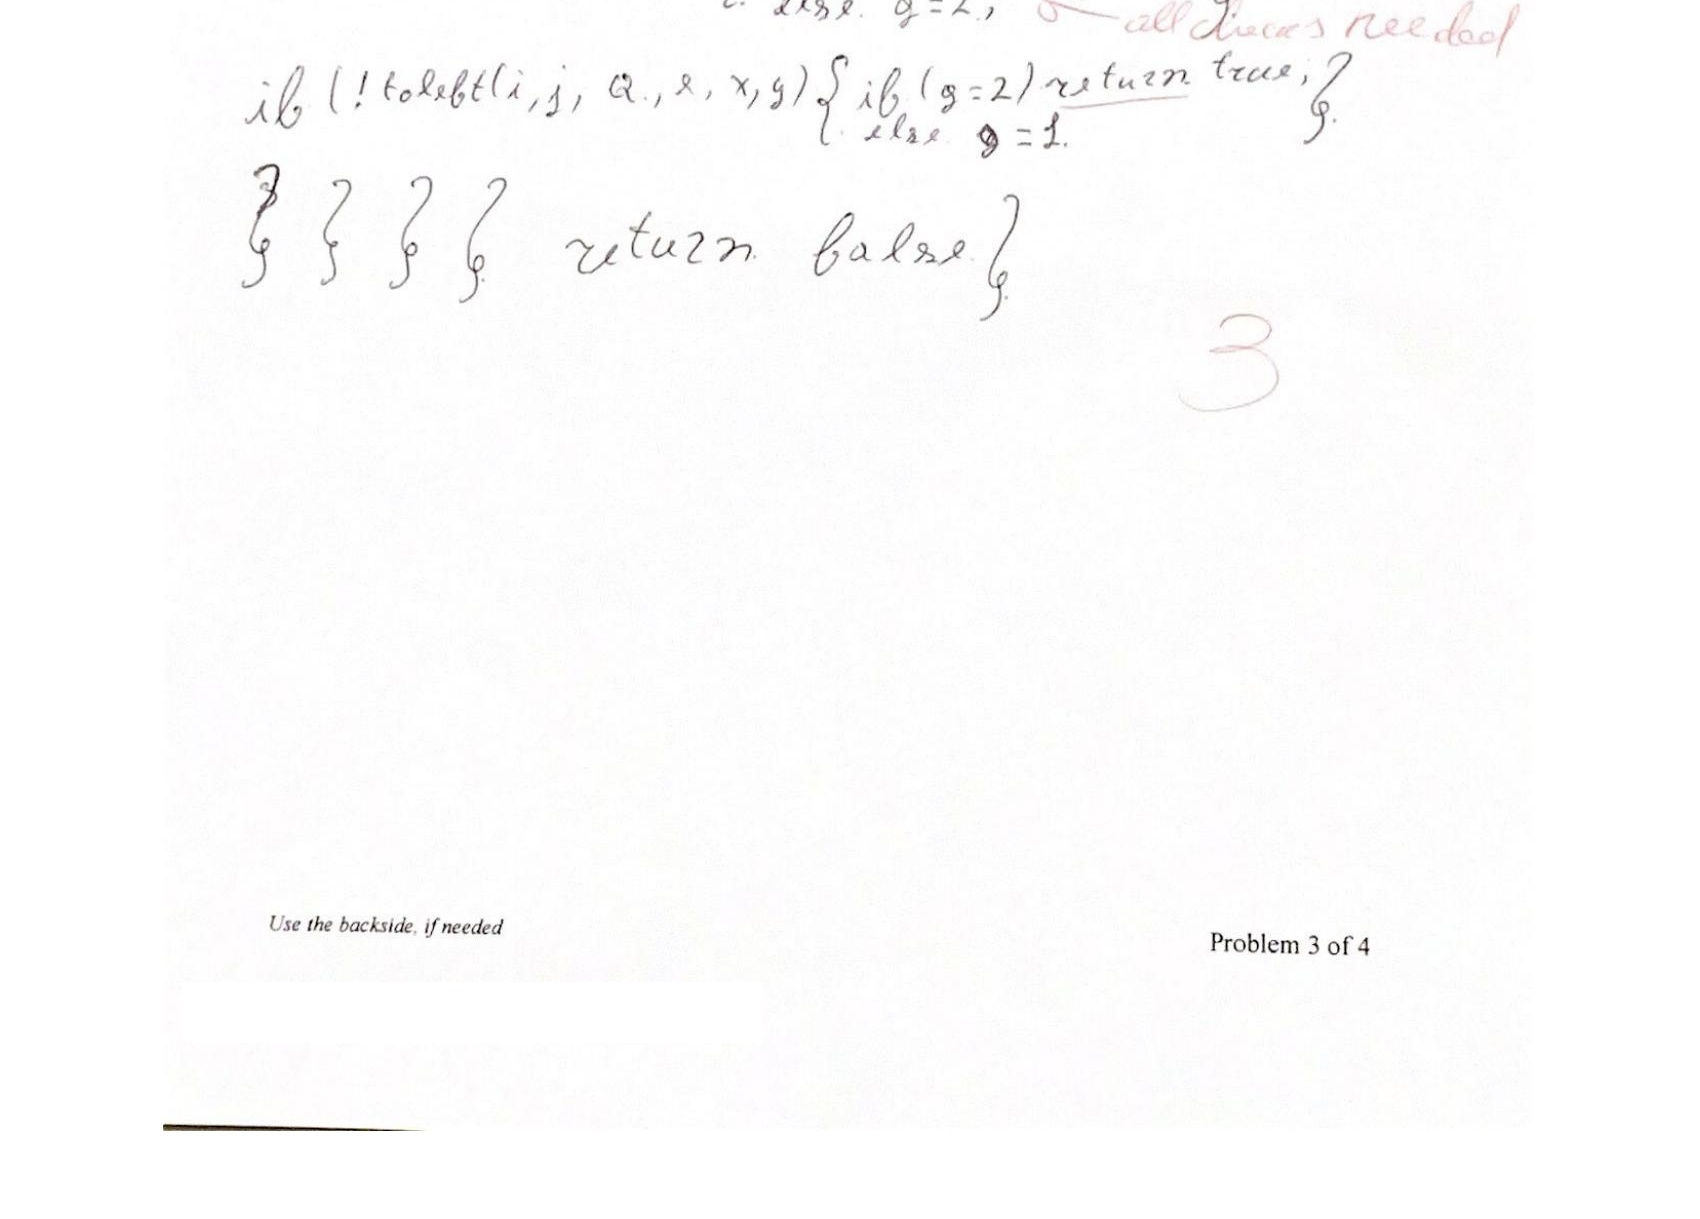 else g=2; all discs needed
if (! toleft(i, j, Q, e, x, y) { if (g=2) return true; }
else g=1.
} } } } return false }
3
Use the backside, if needed
Problem 3 of 4